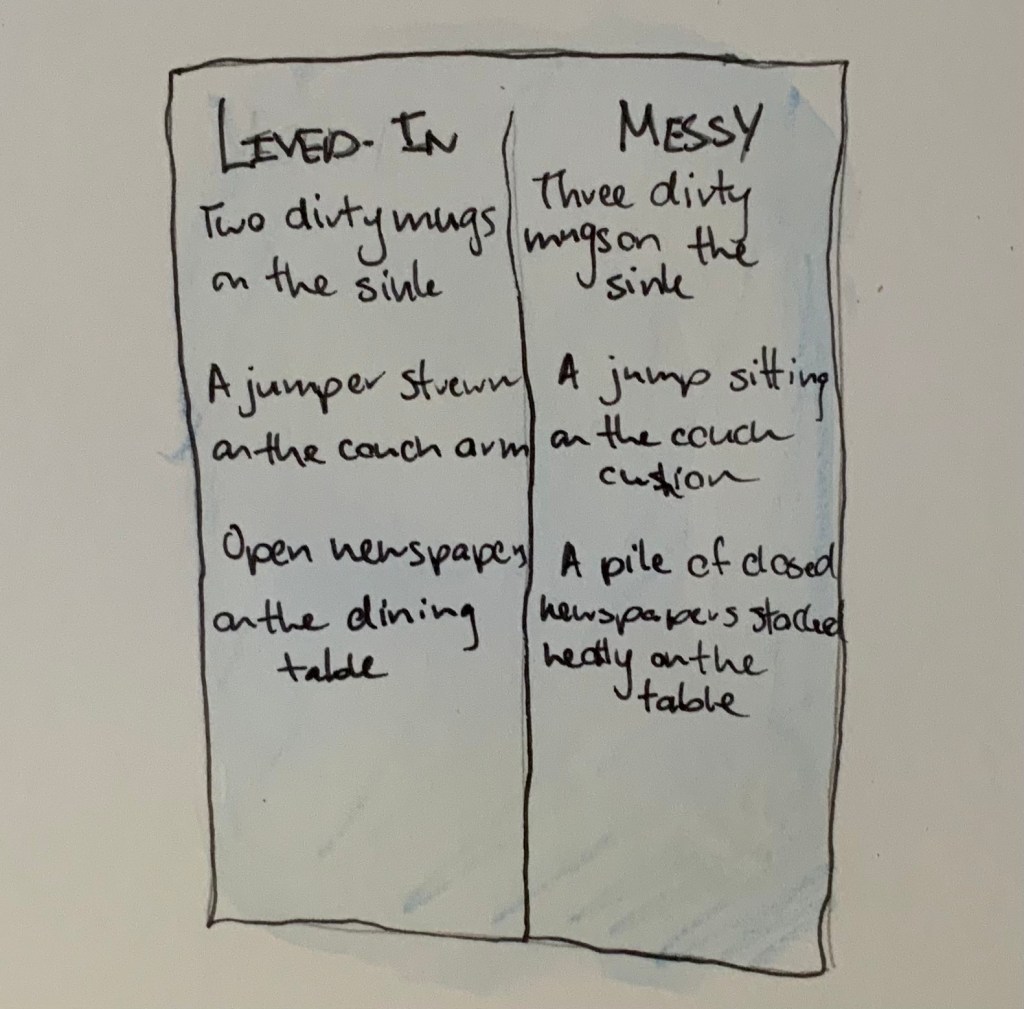 LIVED-IN
Two dirty mugs
on the sink
A jumper strewn
on the couch arm
Open newspaper
on the dining
table
MESSY
Three dirty
mugs on the
sink
A jump sitting
on the couch
cushion
A pile of closed
newspapers stacked
neatly on the
table